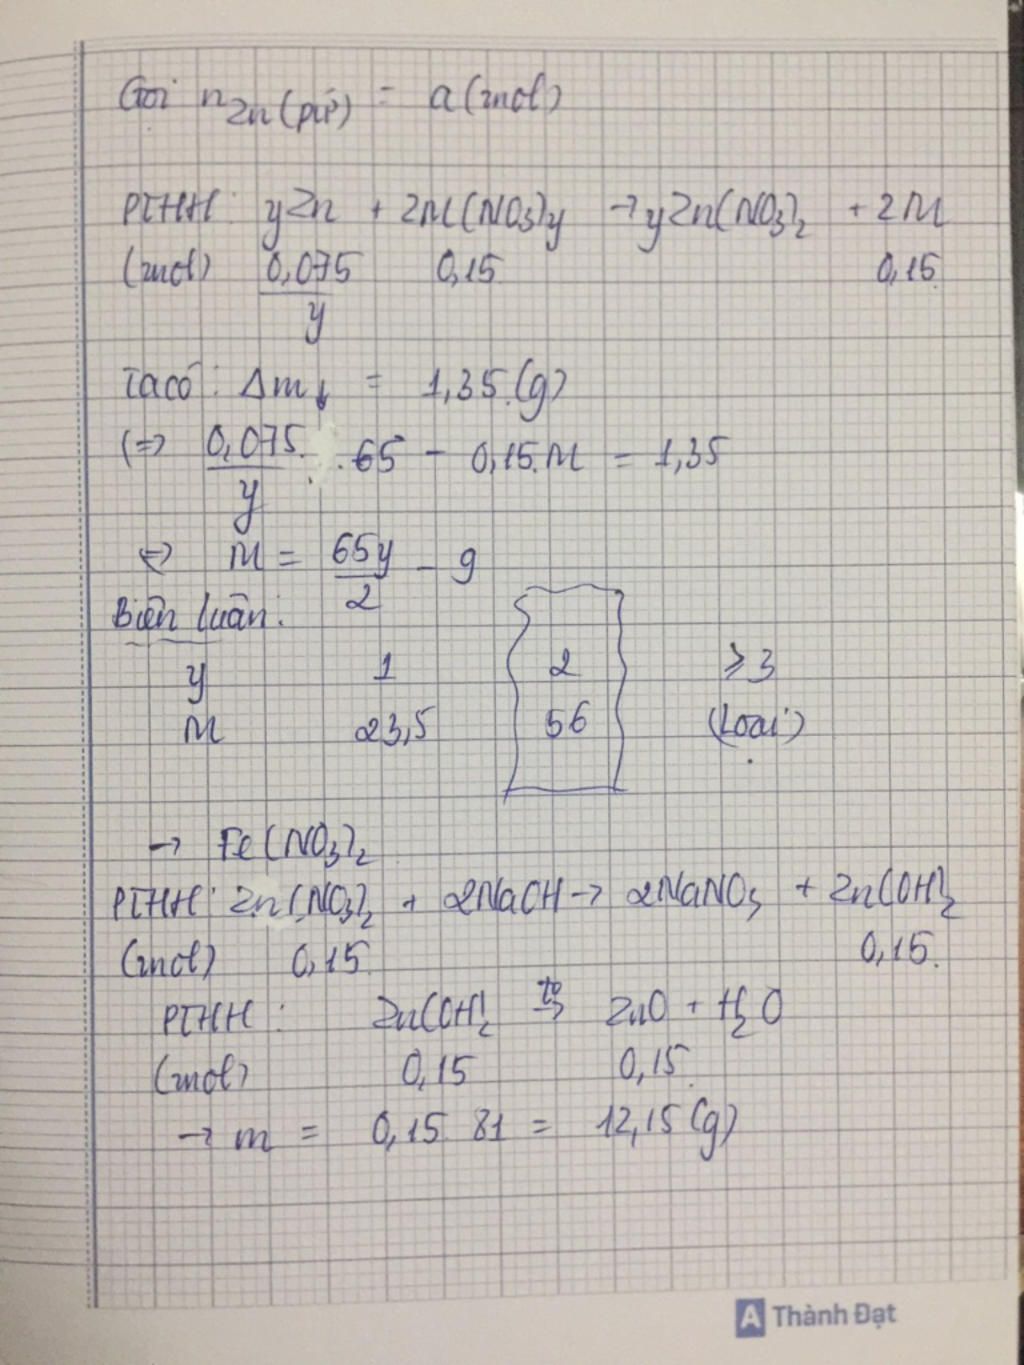 Gọi n Zn(pứ) = a(mol)
PTHH: yZn + 2M(NO3)y → yZn(NO3)2 + 2M
(mol) 0,075/y 0,15 0,15
Ta có: Δm↓ = 1,35 (g)
(=> 0,075/y . 65 - 0,15.M = 1,35
<=> M = 65y/2 - 9
Biện luận:
y 1 2 ≥ 3
M 23,5 56 (Loại)
→ Fe(NO3)2
PTHH: Zn(NO3)2 + 2NaOH → 2NaNO3 + Zn(OH)2
(mol) 0,15 0,15
PTHH: Zn(OH)2 t° → ZnO + H2O
(mol) 0,15 0,15
→ m = 0,15. 81 = 12,15 (g)
A Thành Đạt